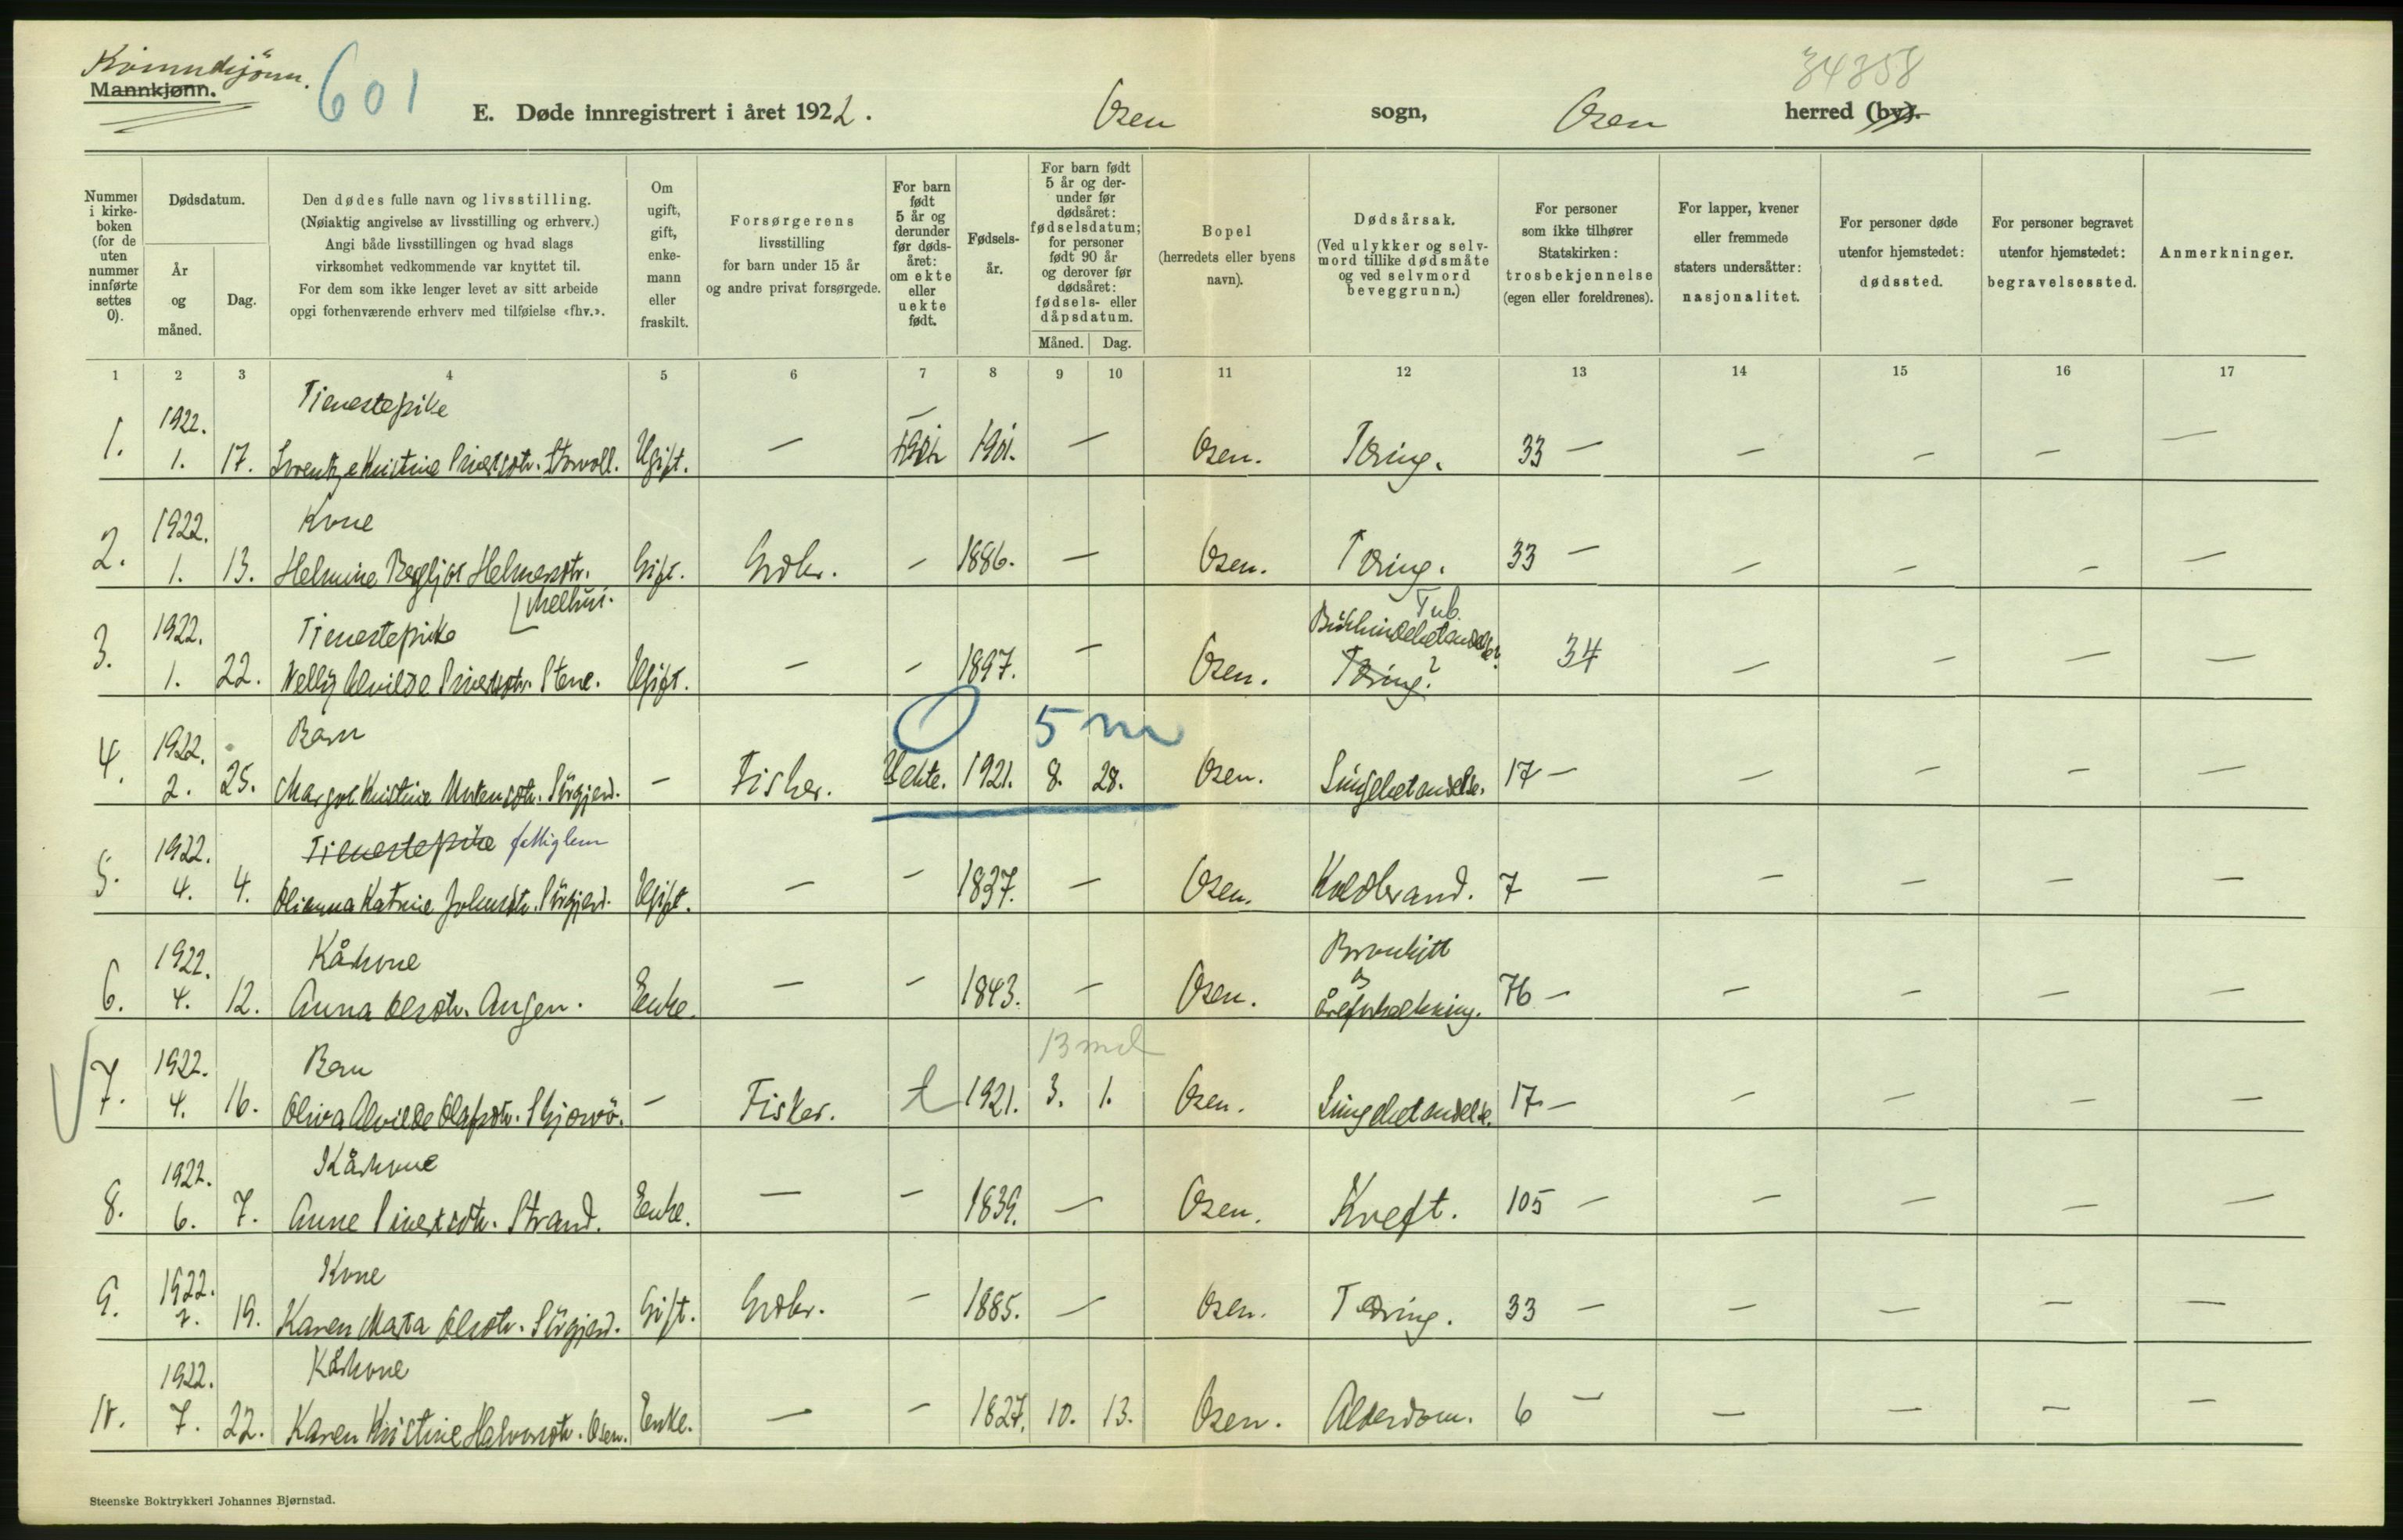 Kvinnekjønn.
Mannkjønn.
601
34358
E. Døde innregistrert i året 1922. Osen sogn, Osen herred (by).
Nummer i kirkeboken (for de uten nummer innførte settes 0).
Dødsdatum.
År og måned.
Dag.
Den dødes fulle navn og livsstilling.
(Nøiaktig angivelse av livsstilling og erhverv.)
Angi både livsstillingen og hvad slags
virksomhet vedkommende var knyttet til.
For dem som ikke lenger levet av sitt arbeide
opgi forhenværende erhverv med tilføielse «fhv.».
Om ugift, gift, enkemann eller fraskilt.
Forsørgerens livsstilling
for barn under 15 år
og andre privat forsørgede.
For barn født 5 år og derunder før dødsåret: om ekte eller uekte født.
Fødselsår.
For barn født 5 år og derunder før dødsåret: fødselsdatum; for personer født 90 år og derover før dødsåret: fødsels- eller dåpsdatum.
Måned. Dag.
Bopel
(herredets eller byens navn).
Dødsårsak.
(Ved ulykker og selvmord tillike dødsmåte og ved selvmord beveggrunn.)
For personer som ikke tilhører Statskirken: trosbekjennelse (egen eller foreldrenes).
For lapper, kvener eller fremmede staters undersåtter: nasjonalitet.
For personer døde utenfor hjemstedet: dødssted.
For personer begravet utenfor hjemstedet: begravelsessted.
Anmerkninger.
1 2 3 4 5 6 7 8 9 10 11 12 13 14 15 16 17
1922. Tienestepike
1. 1. 17. Kristine Storvoll. Ugift. — — 1901. — Osen. Tæring. 33 — — — — —
1922. Kone
2. 1. 13. Helmine Bergljot Helmersdtr. Gift. Grdbr. — 1886. — Osen. Tæring. 33 — — — — —
Melhus.
1922. Tienestepike Tub.
Bukhindebetændelse?
3. 1. 22. Nelly Alvilde Stene. Ugift. — — 1897. — Osen. Tæring? 34 — — — —
5 m
1922. Barn
4. 2. 25. Margot Kristine Sörgjerd. — Fisker. Uekte. 1921. 8. 28. Osen. Lungebetændelse. 17 — — — — —
1922. Tienestepike fattiglem
5. 4. 4. Olianna Katrine Johnsdtr. Sörgjerd. Ugift. — — 1837. — Osen. Koldbrand. 7 — — — — —
1922. Kårkone Bronkitt
og
6. 4. 12. Anna Olsdtr. Angen. Enke. — — 1843. — Osen. Åreforkalkning. 76 — — — — —
13 md
1922. Barn
7. 4. 16. Oliva Alvilde Olafsdtr. Skjervö. — Fisker. 1921. 3. 1. Osen. Lungebetændelse. 17 — — — — —
1922. Kårkone
8. 6. 7. Anne Strand. Enke. — — 1839. — Osen. Kreft. 105 — — — — —
1922. Kone
9. 7. 19. Karen Marta Olsdtr. Sörgjerd. Gift. Grdbr. — 1885. — Osen. Tæring. 33 — — — — —
1922. Kårkone
10. 7. 22. Karen Kristine Halvorsdtr. Osen. Enke. — — 1827. 10. 13. Osen. Alderdom. 6 — — — — —
Steenske Boktrykkeri Johannes Bjørnstad.